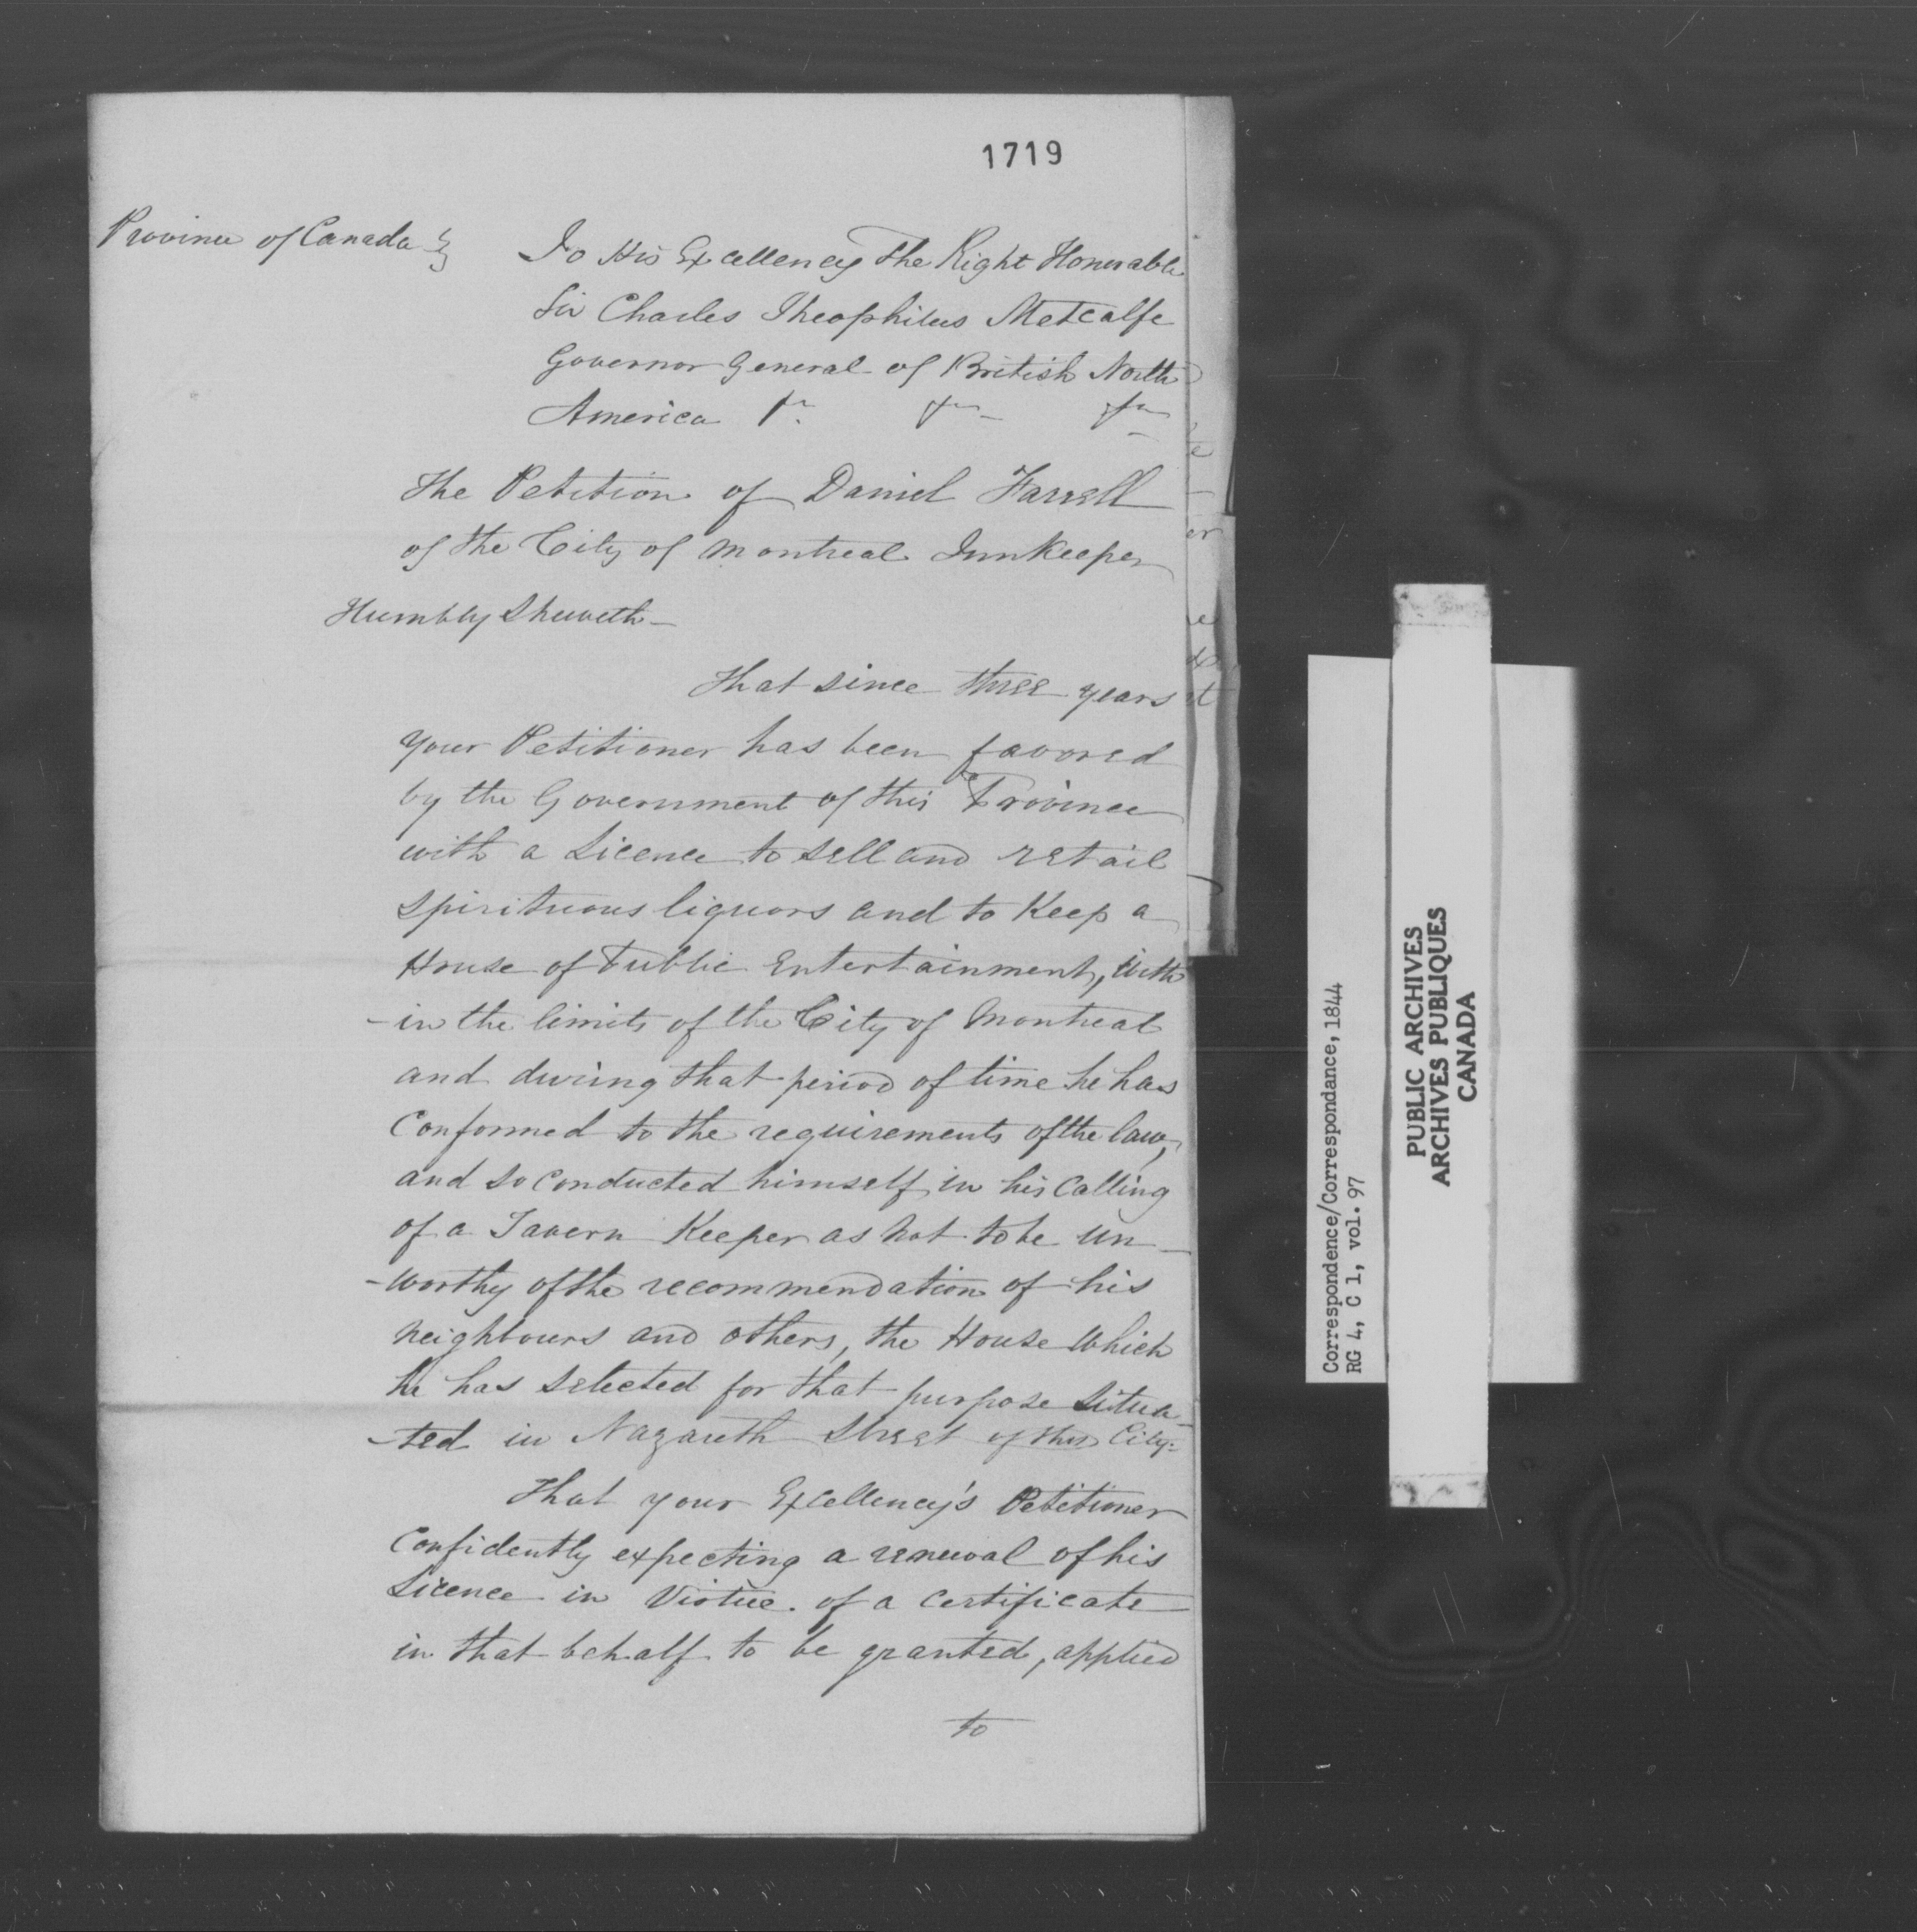 1719
Province of Canada
To His Excellency The Right Honorable
Sir Charles Theophilus Metcalfe
Governor General of British North
America &c. &c &c
The Petition of Daniel Farrell
of the City of Montreal Innkeeper
Humbly Sheweth—
That since three years
your Petitioner has been favored
by the Government of this Province
with a Licence to sell and retail
spirituous liquors and to Keep a
House of Public Entertainment, with
-in the limits of the City of Montreal
and during that period of time he has
Conformed to the requirements of the law,
and so conducted himself in his Calling
of a Tavern Keeper as not to be un-
-worthy of the recommendation of his
neighbours and others, the House which
he has selected for that purpose situa-
-ted in Nazareth Street of this City.
That your Excellency's Petitioner
Confidently expecting a renewal of his
Licence in Virtue of a Certificate
in that behalf to be granted, applied
to
Correspondence/Correspondance, 1844
RG 4, C 1, vol. 97
PUBLIC ARCHIVES
ARCHIVES PUBLIQUES
CANADA